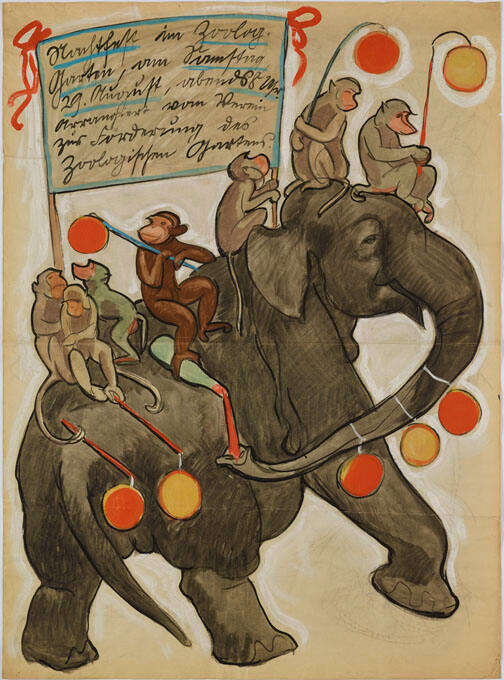 Nachtfest im Zoolog.
Garten, am Samstag
29. August, abends 8 Uhr
Arrangiert vom Verein
zur Förderung des
Zoologischen Gartens.